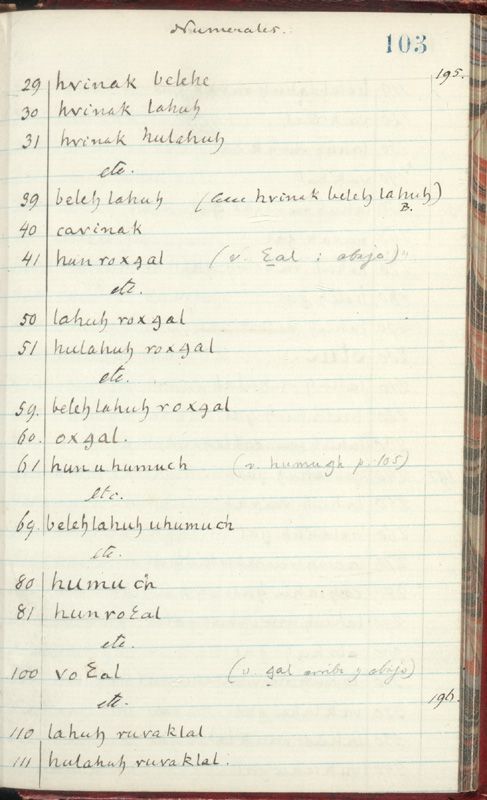 Numerales.
103
195.
29 hvinak belehe
30 hvinak lahuh
31 hvinak hulahuh
etc.
39 beleh lahuh ( hvinak beleh lahuh)
B.
40 cavinak
41 hun roxgal (v. Ɛal : abajo)
etc.
50 lahuh roxgal
51 hulahuh roxgal
etc.
59. beleh lahuh roxgal
60. oxgal.
61 hun u humuch (v. humugh p. 105)
etc.
69. beleh lahuh uhumuch
etc.
80 humuch
81 hun roƐal
etc.
100 voƐal (v. gal arriba y abajo)
etc. 196.
110 lahuh ruvaklal
111 hulahuh ruvaklal.